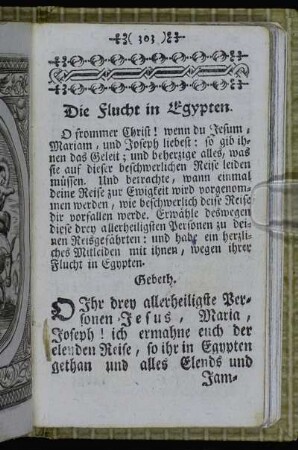 ( 303 )
Die Flucht in Egypten.
O frommer Christ! wenn du Jesum,
Mariam, und Joseph liebest: so gib ih-
nen das Geleit; und beherzige alles, was
sie auf dieser beschwerlichen Reise leiden
müssen. Und betrachte, wann einmal
deine Reise zur Ewigkeit wird vorgenom-
men werden, wie beschwerlich deise Reise
dir vorfallen werde. Erwähle deswegen
diese drey allerheiligsten Personen zu dei-
nen Reisgefährten: und habe ein herzli-
ches Mitleiden mit ihnen, wegen ihrer
Flucht in Egypten.
Gebeth.
O Ihr drey allerheiligste Per-
sonen Jesus, Maria,
Joseph! ich ermahne euch der
elenden Reise, so ihr in Egypten
gethan und alles Elends und
Jam-